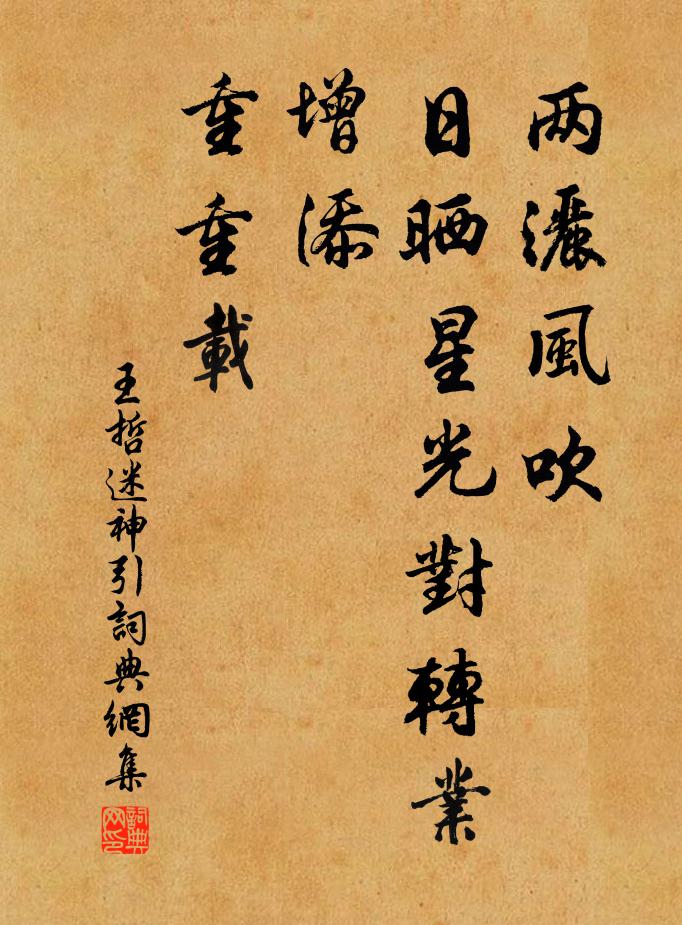 两灑風吹
日晒星光對轉業
增添
重重載
王哲迷神引詞典網集
詞典网印